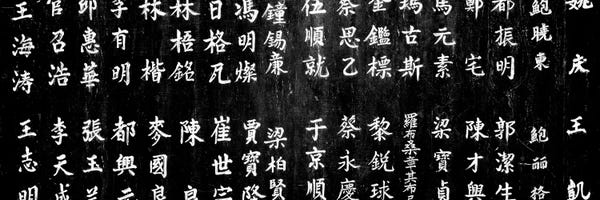 姚庆 王凱
鮑曉東 鮑丽格
都振明 郭潔生
鄭宅 陳才興
馬元素 梁寶貞
瑪古斯 羅布桑其布
金鑑標 黎銳球
蔡思乙 蔡永慶
伍順就 于京順
鐘錫廉 梁柏賢
馮明燦 賈寶隆
日格瓦 崔世
林梧銘 陳良
林楷 麥國良
李有明 都興元
邱惠華 張玉
官召浩 李天成
王海涛 王志明